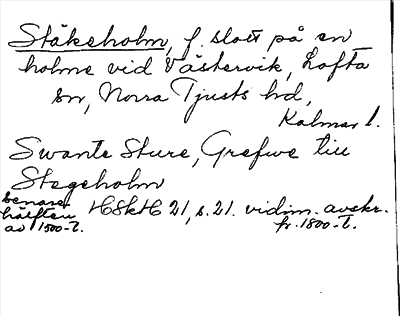 Stäkeholm, f. slott på en
holme vid Västervik, Lofta
sn, Norra Tjusts hd,
Kalmar l.
Swante Sture, Grefwe till
Stegeholm
senare hälften av 1500-t. HSkH 21, s. 21. vidim. avskr. fr. 1800-t.